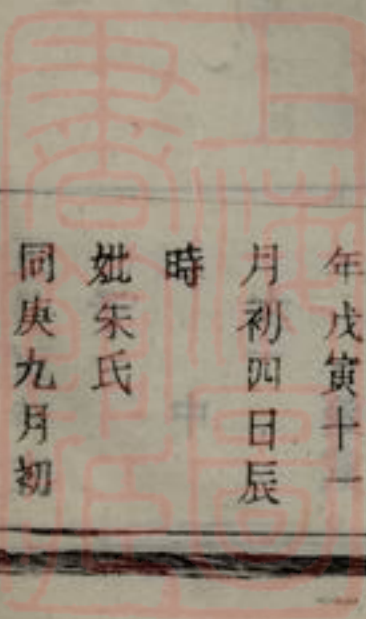 年戊寅十一
月初四日辰
時
妣朱氏
同庚九月初